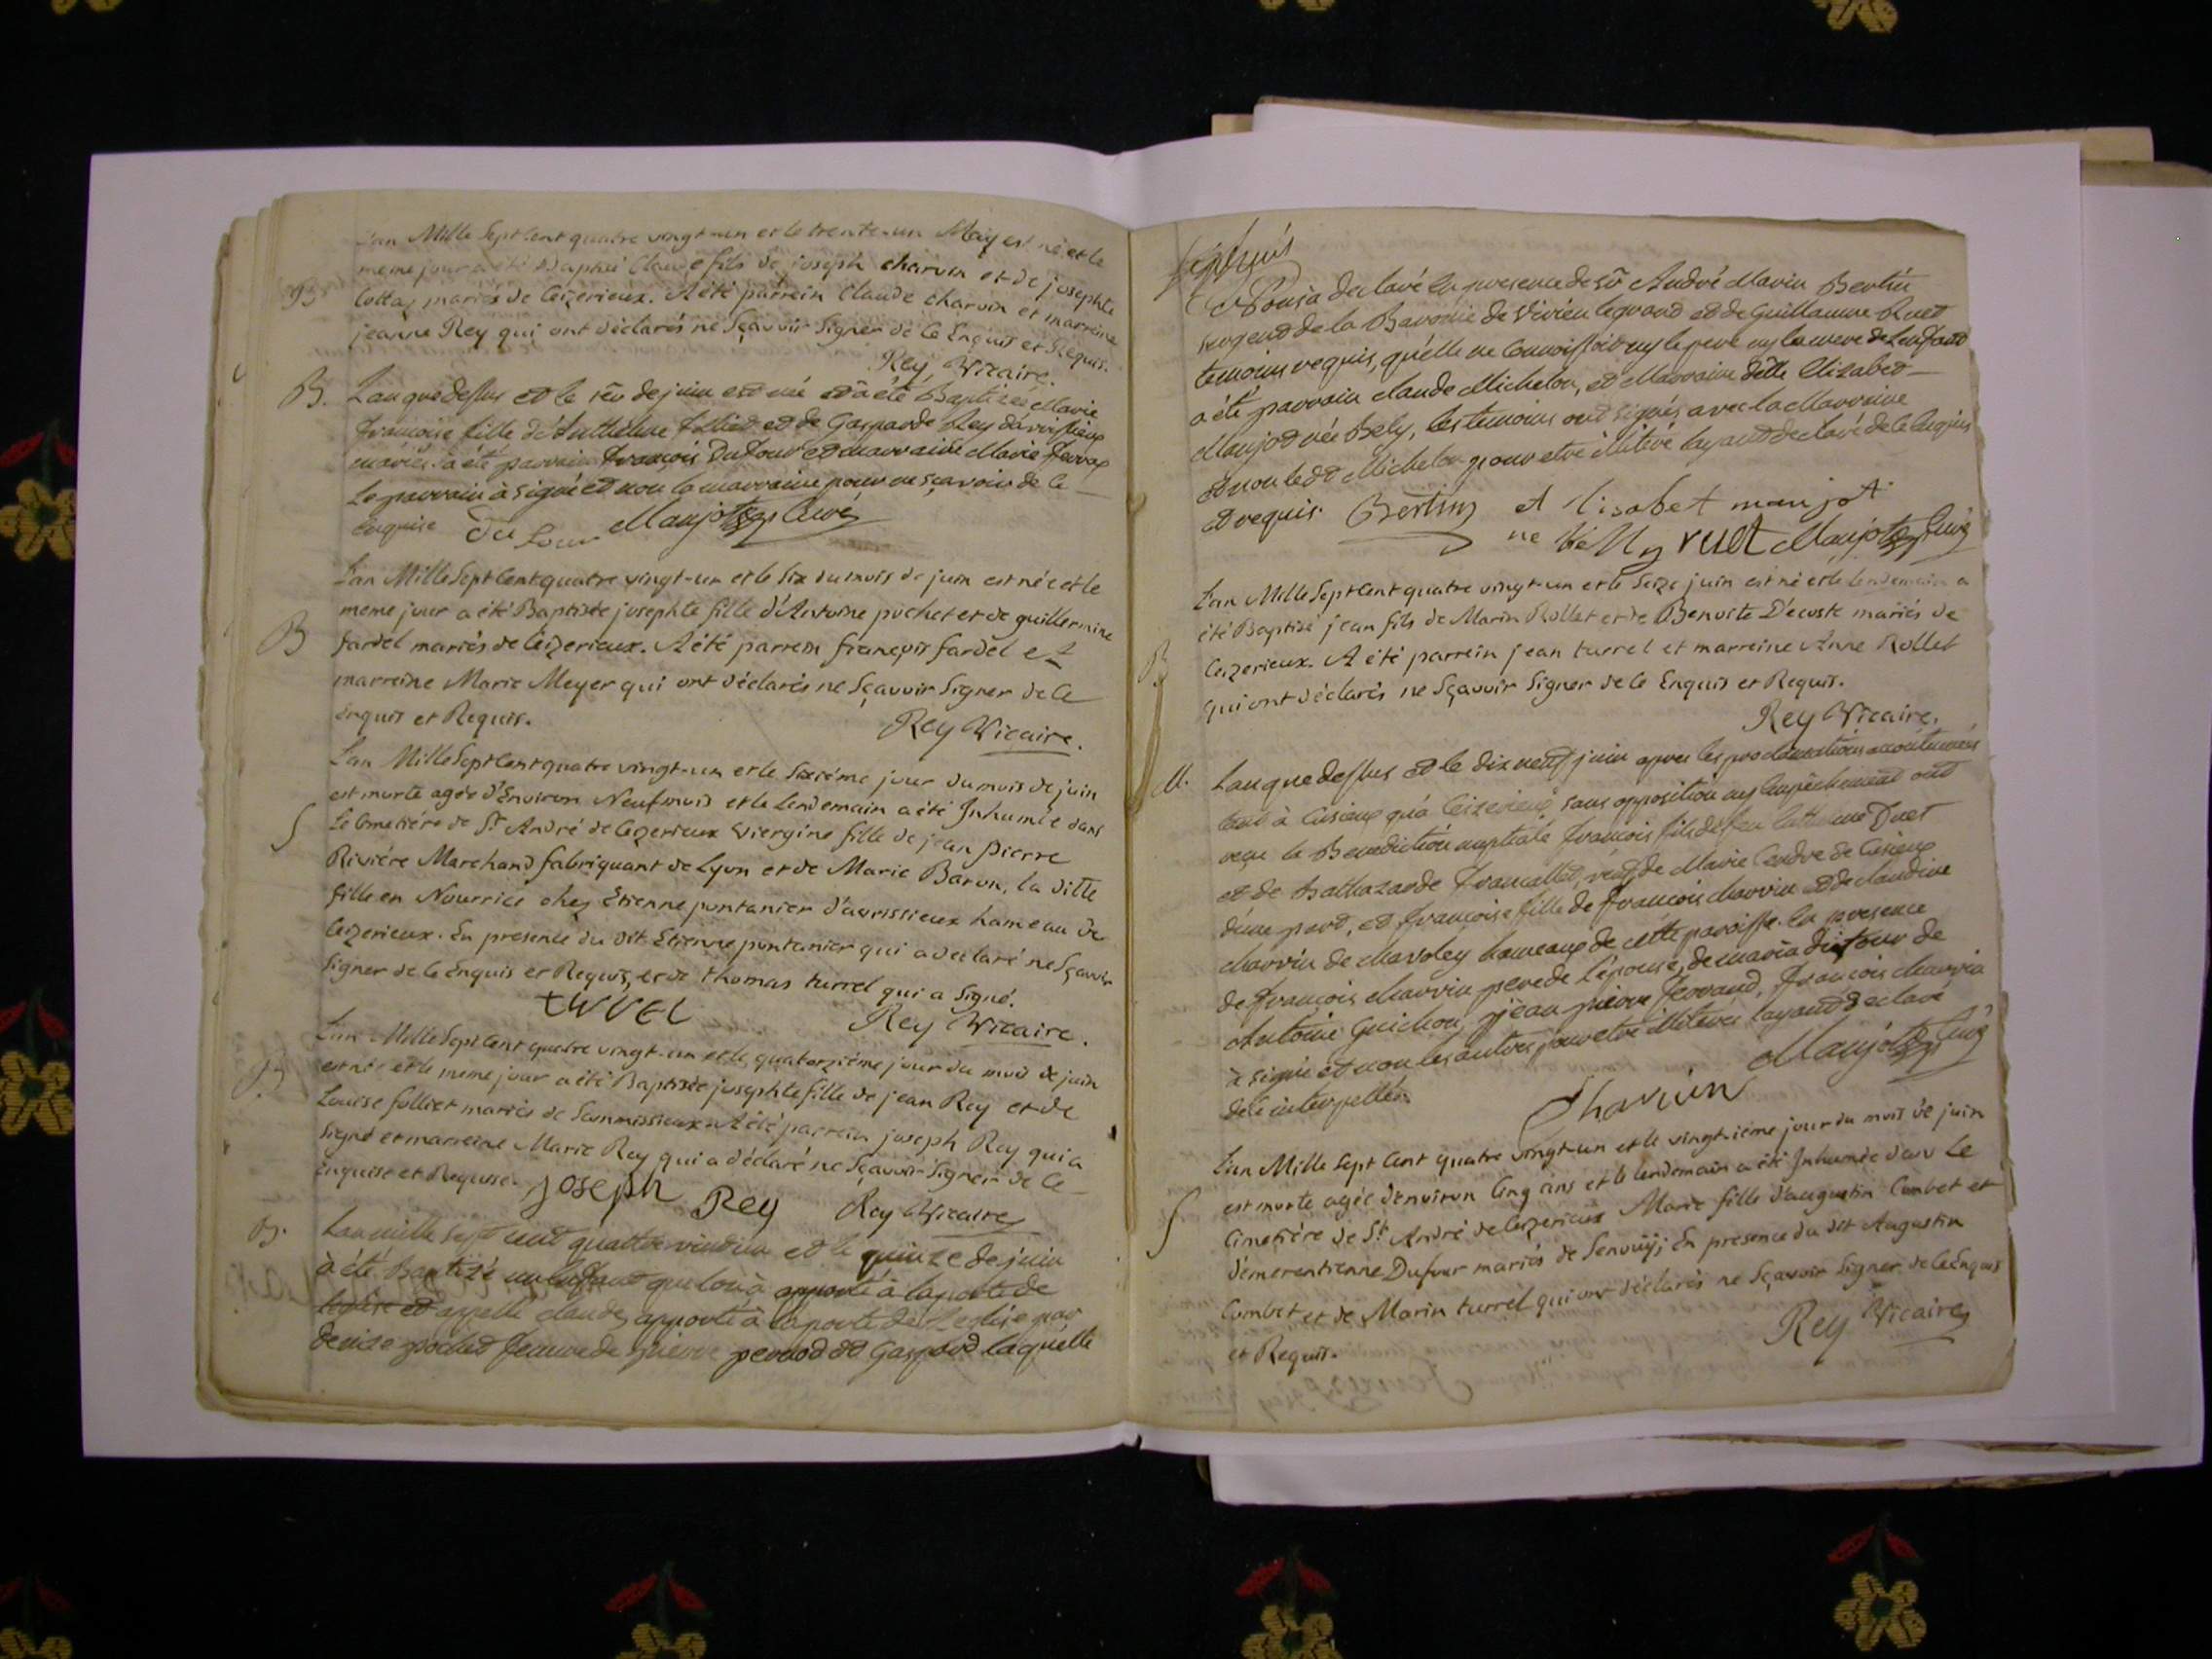 L'an Mille Sept Cent quatre vingt-un et le trente-un May est né et le
meme jour a été Baptisé Claude fils de joseph charvin et de josephte
B
Cottaz mariés de Ceizerieux. A été parrein Claude charvin et marreine
jeanne Rey qui ont déclarés ne Sçavoir Signer de Ce Enquis et Requis.
Rey Vicaire.
B. L'an que dessus et le de juin est née et a été Baptizée Marie
françoise fille d'Anthelme follied et de Gasparde Rey
mariés. a été parrain françois Dufour et marraine Marie
Le parrain à signé et non la marraine pour ne sçavoir de Ce
Enquise Du four Maujot Curé
L'an Mille Sept Cent quatre vingt-un et le Six du mois de juin est née et le
meme jour a été Baptisée josephte fille d'Antoine pochet et de guillermine
B fardel mariés de Ceizerieux. A été parrein françois fardel et
marreine Marie Meyer qui ont déclarés ne Sçavoir Signer de Ce
Enquis et Requis. Rey Vicaire.
L'an Mille Sept Cent quatre vingt-un et le Sixiéme jour du mois de juin
est morte agée d'Environ Neuf mois et le Lendemain a été Inhumée dans
S Le Cimetiére de St André de Ceizerieux Viergine fille de jean pierre
Riviére Marchand fabriquant de Lyon et de Marie Baron, la ditte
fille en Nourrice chez Etienne pontanier d'avrissieux hameau de
Ceizerieux. En presence du dit Etienne pontanier qui a declaré ne Sçavoir
Signer de Ce Enquis et Requis, et de thomas turrel qui a Signé.
turrel Rey Vicaire.
L'an Mille Sept Cent quatre vingt-un et le quatorziéme jour du mois de juin
B. est née et le meme jour a été Baptisée josephte fille de jean Rey et de
Louise folliet mariés de A été parrein joseph Rey qui a
Signé et marreine Marie Rey qui a déclaré ne Sçavoir Signer de Ce
Enquise et Requise. joseph Rey Rey Vicaire
B. L'an mille sept cent et le quinze de juin
à été Baptizé un Enfant que l'on à apporté à la porte de
leglise et appellé claude, apporté à la porte de L'eglise par
denize pochet femme de pierre pernod dit Gaspard laquelle

à declaré En presence de André Marin Bertin
sergend de la Baronie de Virieu le grand et de Guillaume Ruet
temoins requis, qu'elle ne Connoissoit ny le pere ny la mere de L'enfant
a été parrain claude Michelon, et Marraine dette Elizabet
Maujot née Bely, les temoins ont signés avec la Marraine
et non le dt Michelon pour etre illiteré layant declaré de Ce Enquis
et requis. Bertin et lisabet maujot
ne belly ruet Maujot Curé
L'an Mille Sept Cent quatre vingt-un et le Seize juin est né et le Lendemain a
été Baptisé jean fils de Marin Rollet et de Benoite Décoste mariés de
B Ceizerieux. A été parrein jean turrel et marreine Anne Rollet
qui ont déclarés ne Sçavoir Signer de Ce Enquis et Requis.
Rey Vicaire.
M. L'an que dessus et le dix neuf juin apres les proclamations accoutumées
tant à Cusieux qu'à Ceizerieux sans opposition ny Empêchement ont
reçu la Benediction nuptiale françois fils de feu
et de Balthazarde françallet, de Marie
d'une part, et françoise fille de françois charvin et de claudine
charvin de hameaux de cette paroisse. En presence
de françois charvin pere de l'épouse, de marin dufour de
Antoine Guichon, jean pierre ferrand, françois charvin
à signé et non les autres pour etre illiterés layant declaré
de Ce interpellés. Charvin Maujot Curé
L'an Mille Sept Cent quatre vingt-un et le vingt-iéme jour du mois de juin
est morte agée d'environ Cinq ans et le lendemain a été Inhumée dans Le
S Cimetiére de St André de Ceizerieux Marie fille d'augustin Combet et
d'émerentienne Dufour mariés de En presence du dit Augustin
Combet et de Marin turrel qui ont déclarés ne Sçavoir Signer de Ce Enquis
et Requis. Rey Vicaire